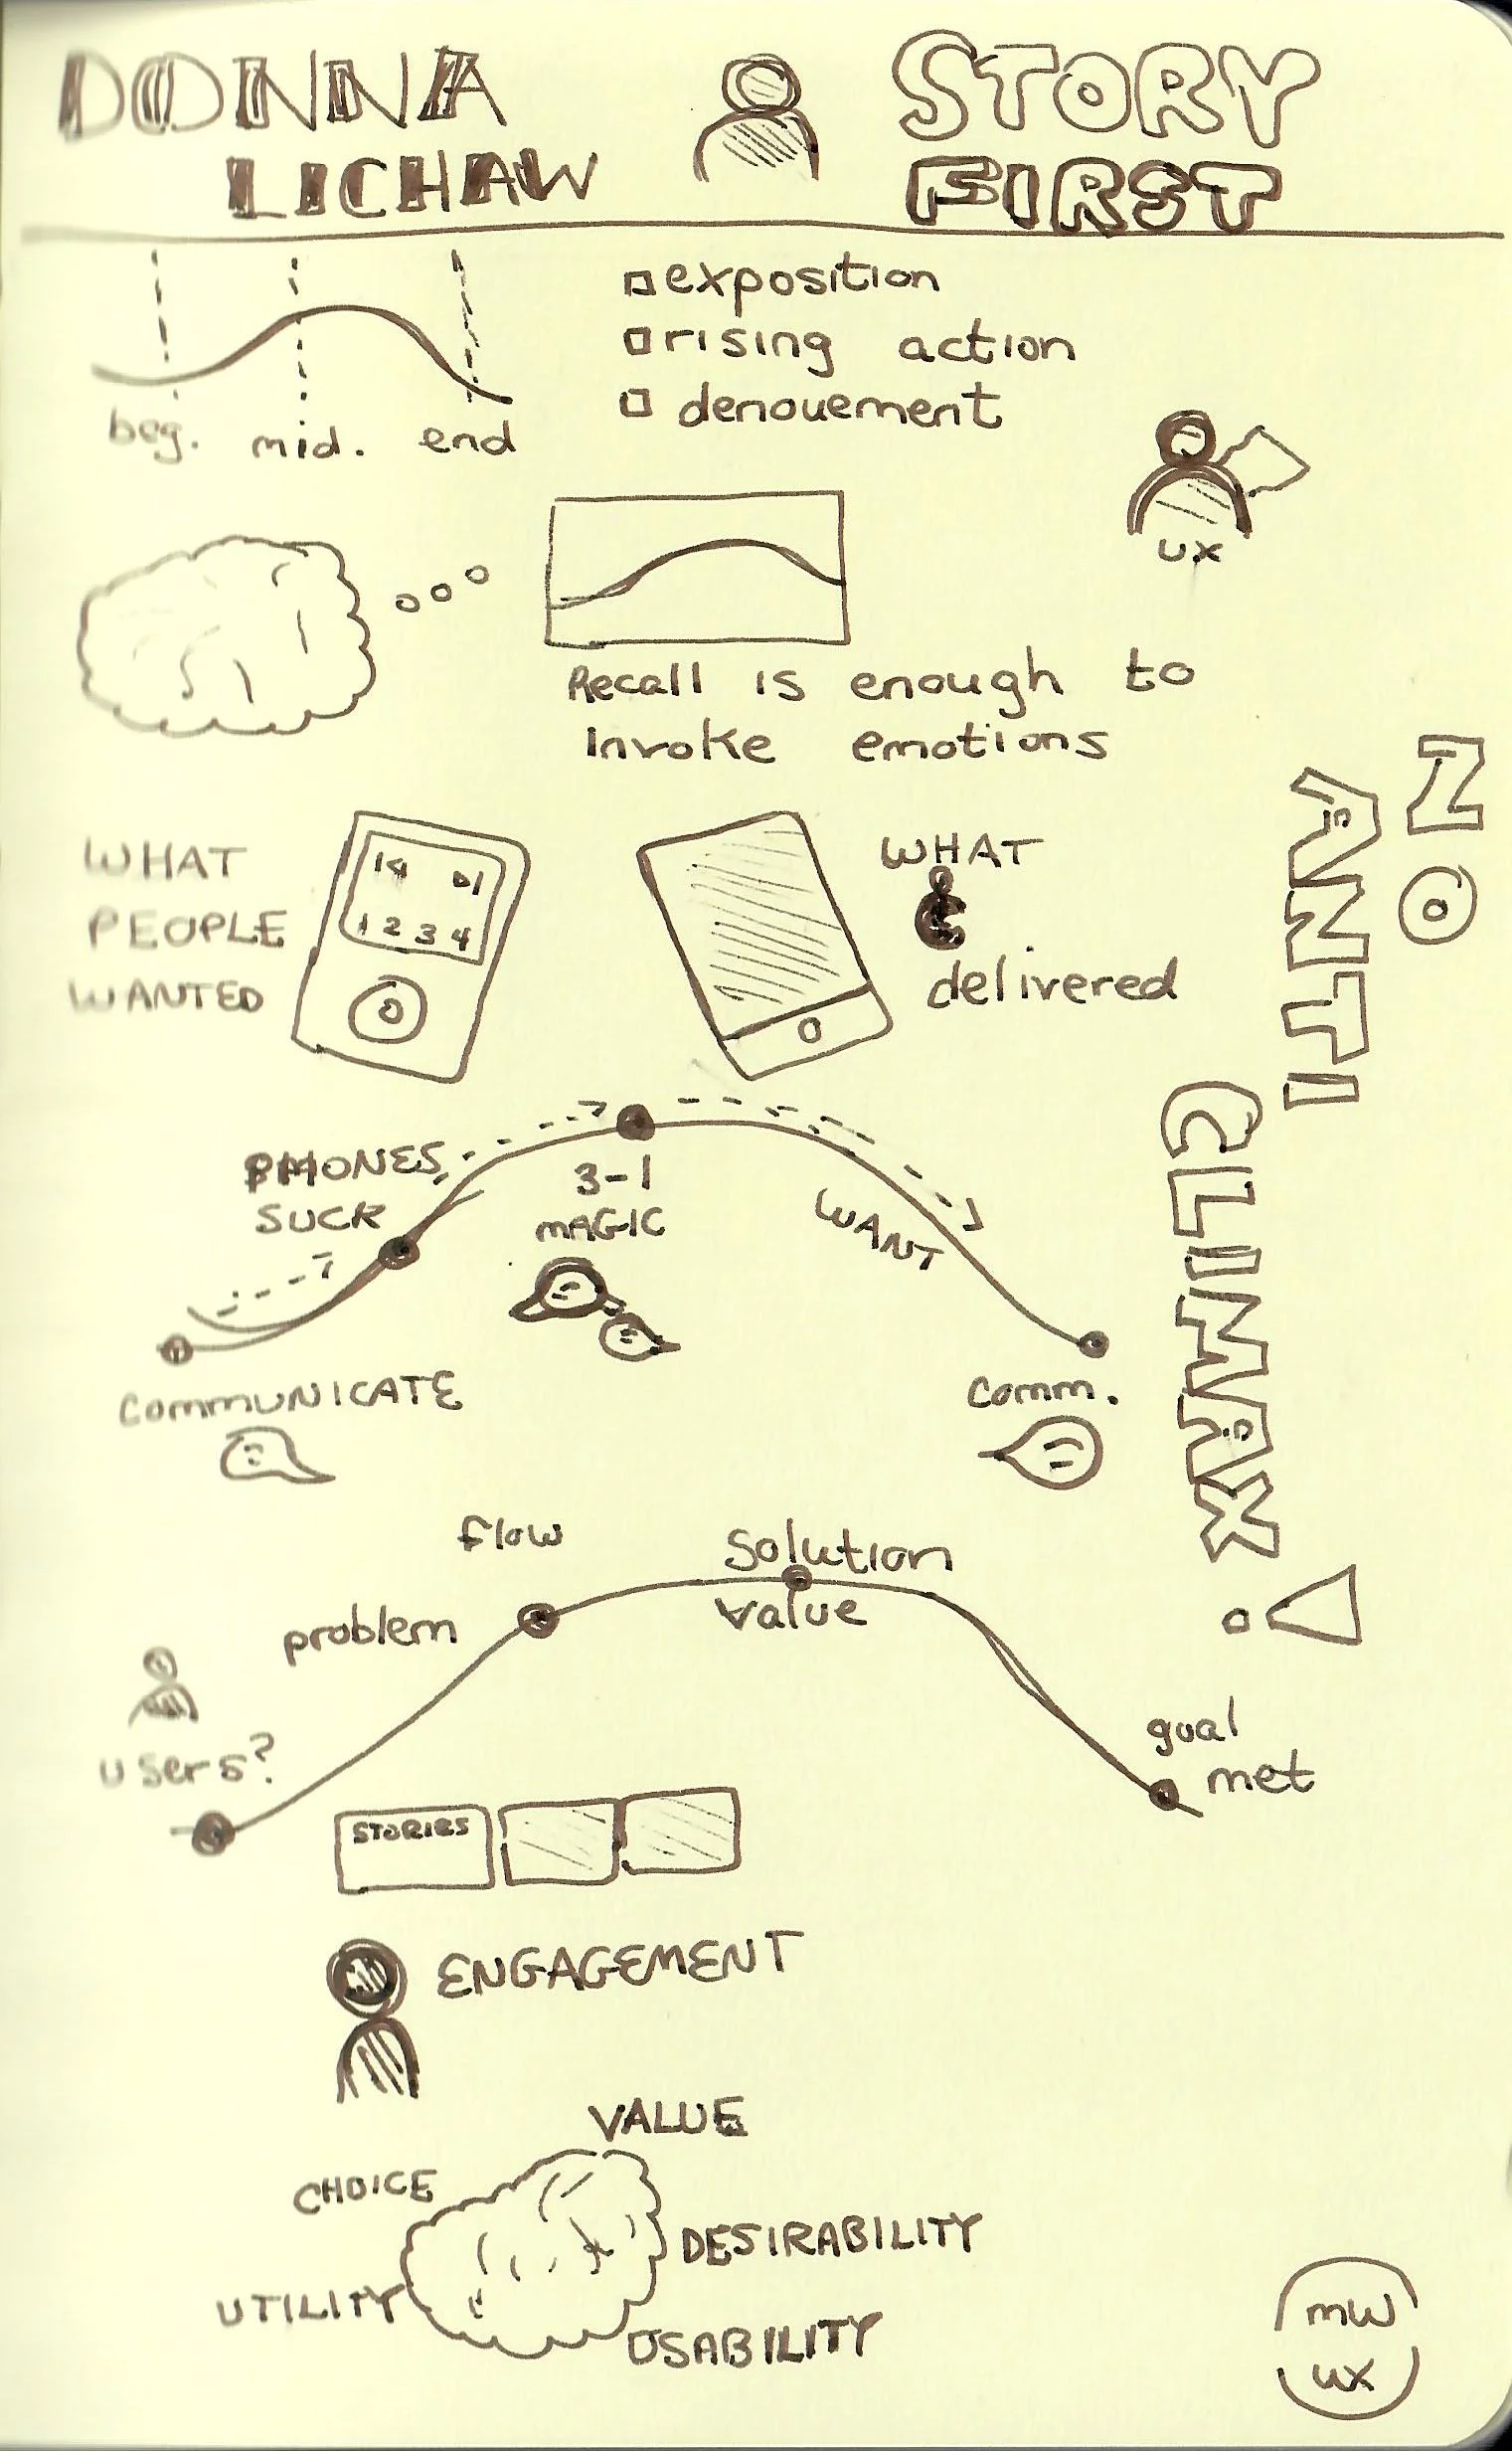 DONNA
LICHAW
STORY
FIRST
beg. mid. end
exposition
rising action
denouement
UX
Recall is enough to
invoke emotions
WHAT
PEOPLE
WANTED
1 2 3 4
WHAT
delivered
NO
ANTI
CLIMAX!
PHONES
SUCK
3-1
MAGIC
WANT
COMMUNICATE
Comm.
flow
Solution
value
problem
users?
goal
met
STORIES
ENGAGEMENT
VALUE
CHOICE
DESIRABILITY
UTILITY
USABILITY
mw
ux